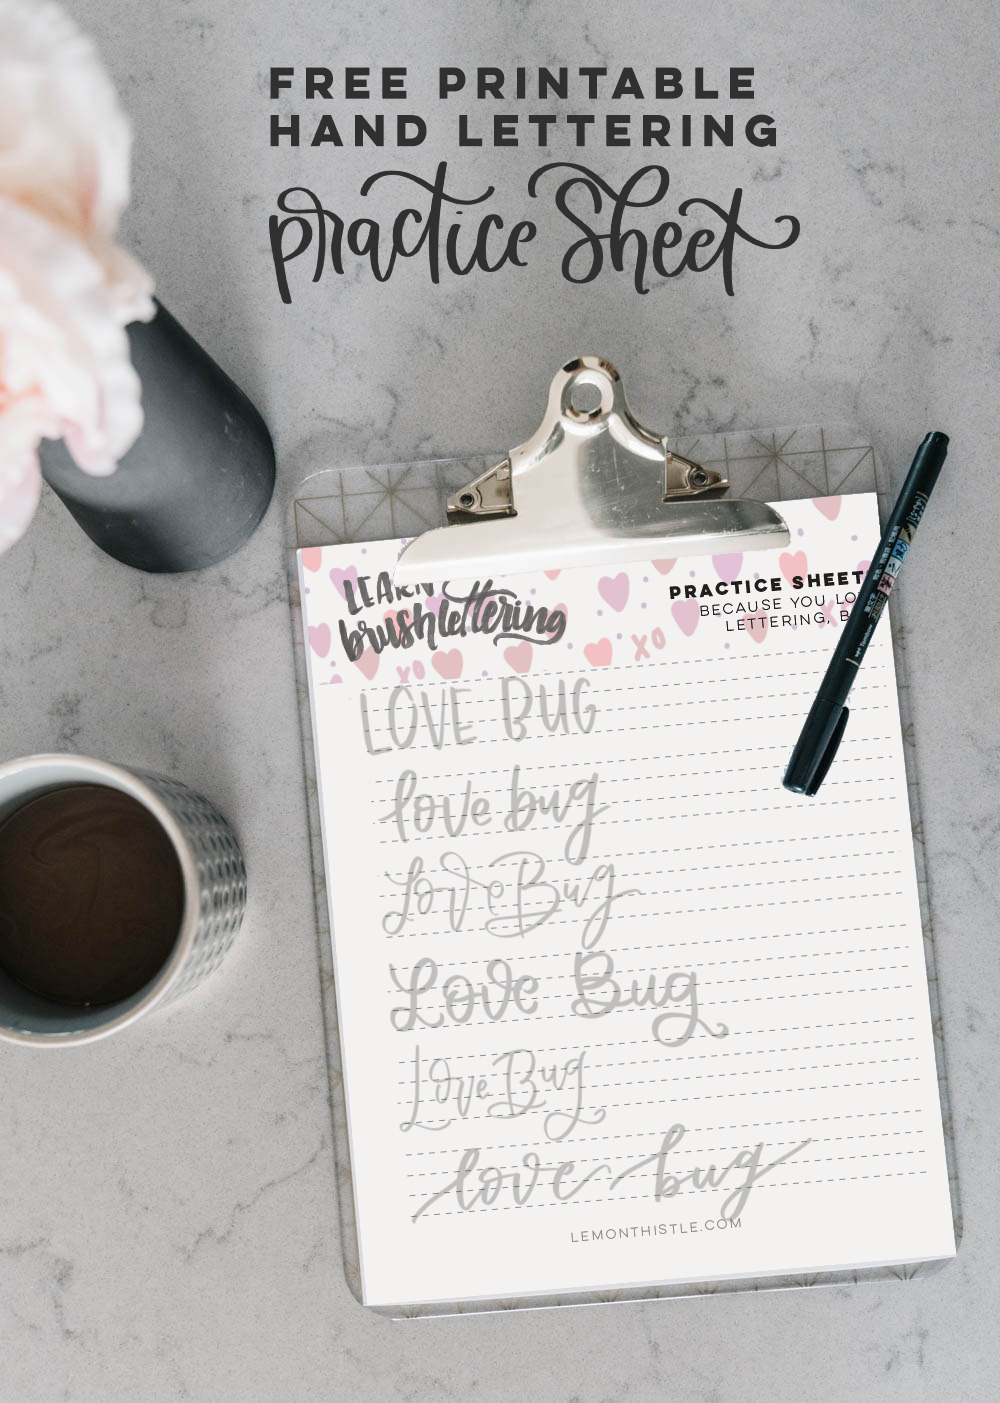 FREE PRINTABLE
HAND LETTERING
practice Sheet
LEARN
brushlettering
PRACTICE SHEET
BECAUSE YOU
LETTERING,
XO
XO
LOVE BUG
love bug
Love Bug
Love Bug
Love Bug
love bug
LEMONTHISTLE.COM